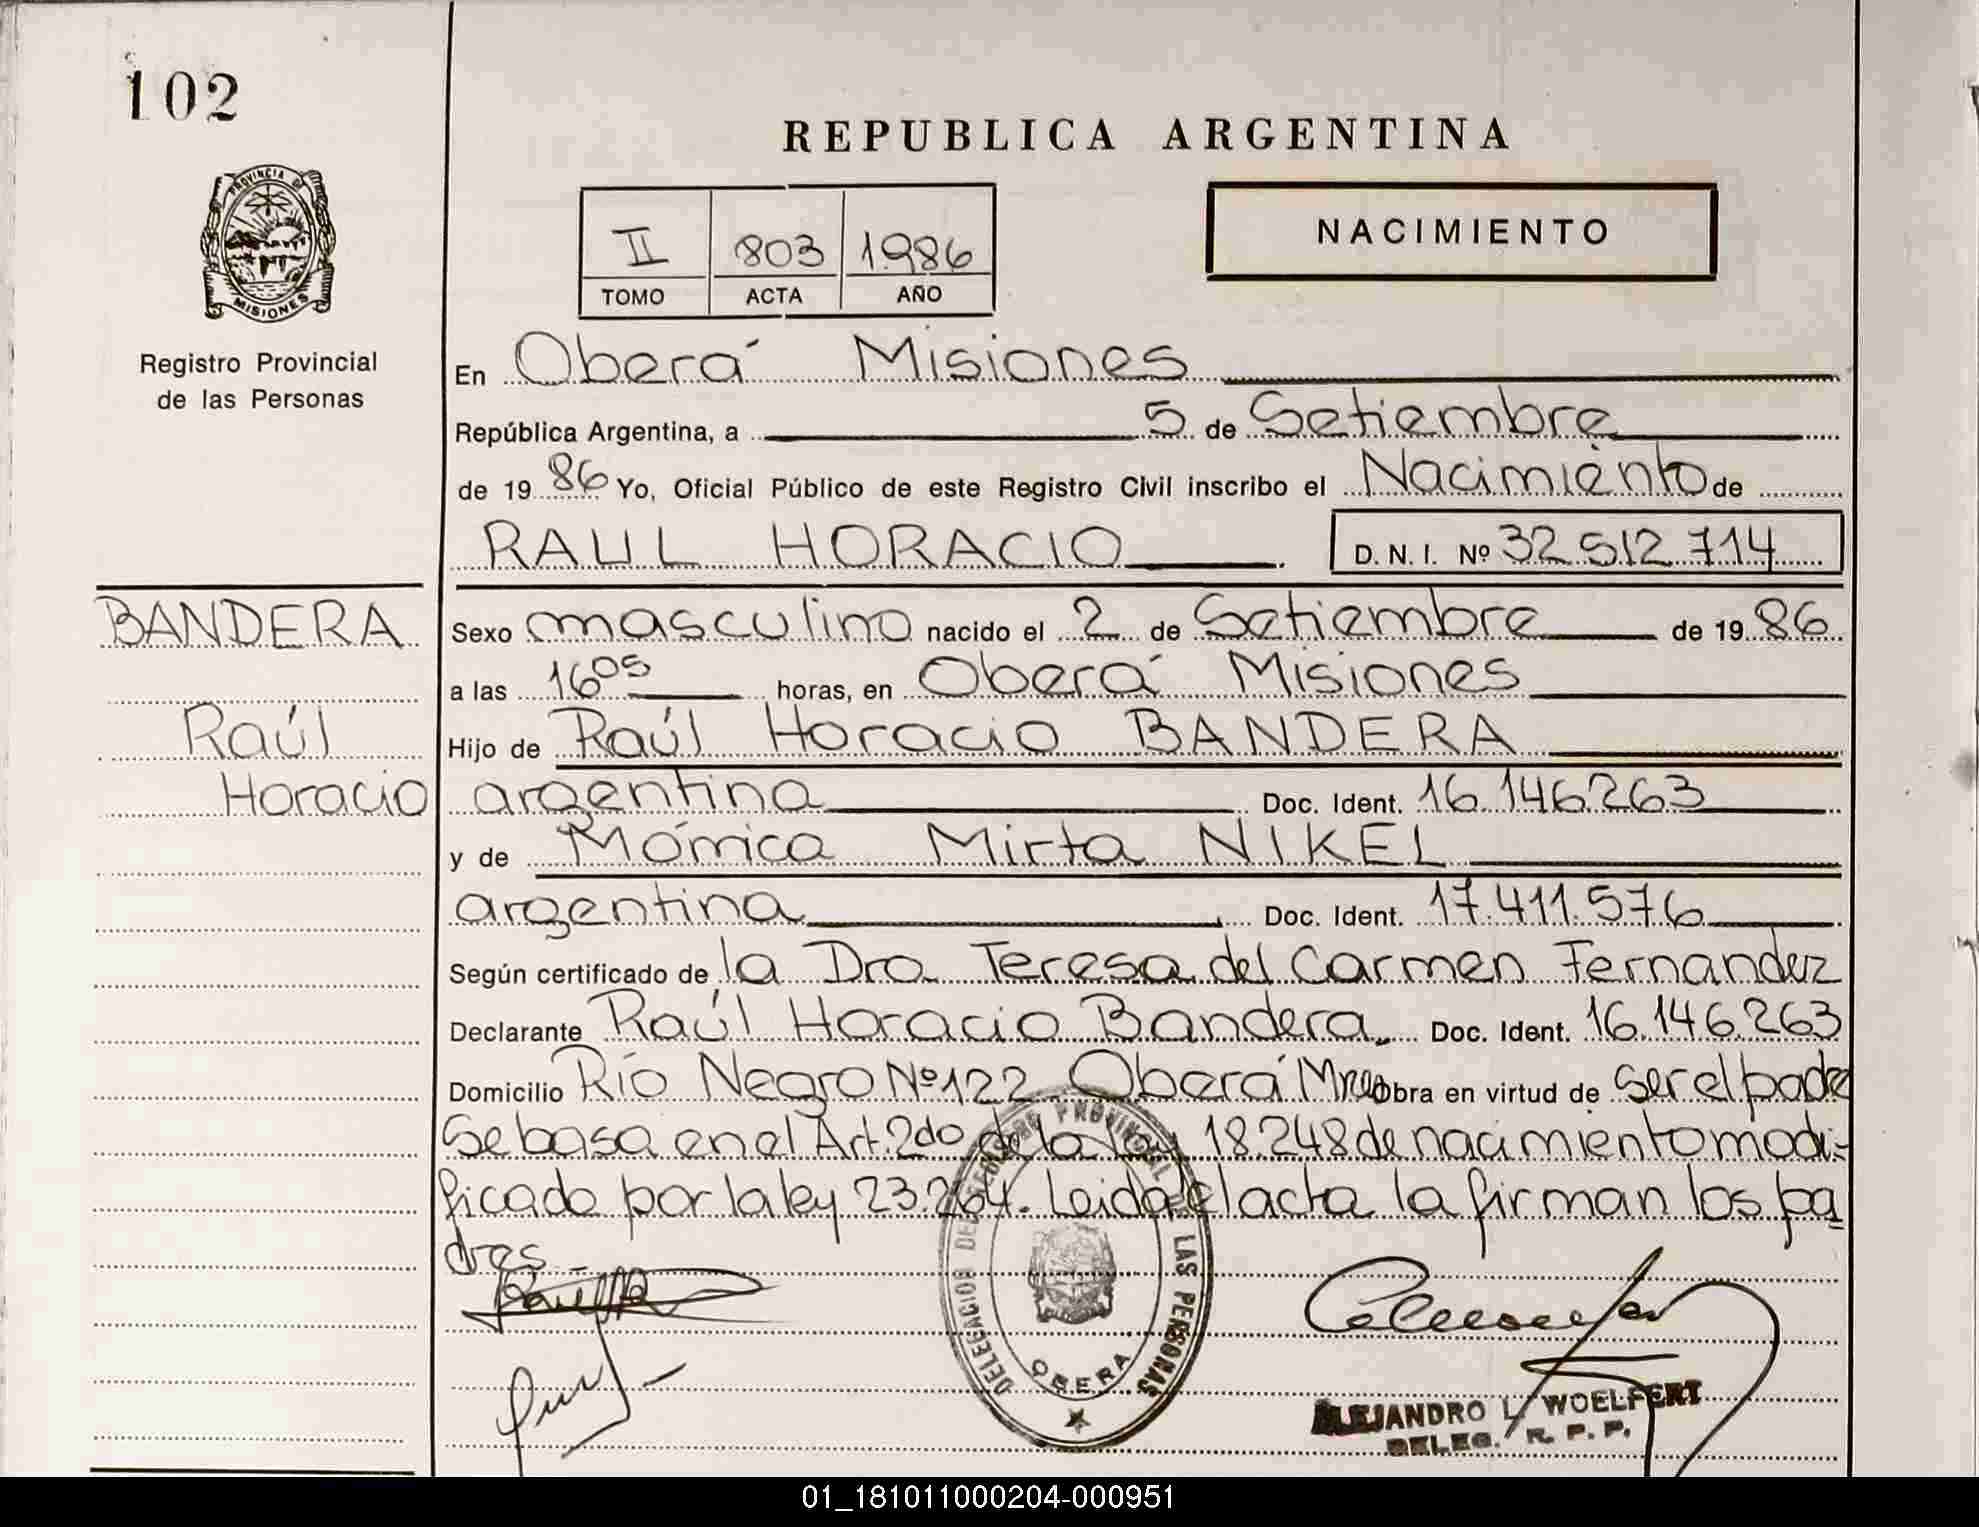 102
REPUBLICA ARGENTINA
PROVINCIA DE
MISIONES
II 803 1986
TOMO ACTA AÑO
NACIMIENTO
Registro Provincial
de las Personas
En Oberá Misiones
República Argentina, a 5 de Setiembre
de 1986 Yo, Oficial Público de este Registro Civil inscribo el Nacimiento de
RAUL HORACIO D. N. I. Nº 32.512.714
BANDERA
Raúl
Horacio
Sexo masculino nacido el 2 de Setiembre de 1986
a las 16 05 horas, en Oberá Misiones
Hijo de Raúl Horacio BANDERA
argentina Doc. Ident. 16.146.263
y de Mónica Mirta NIKEL
argentina Doc. Ident. 17.411.576
Según certificado de la Dra. Teresa del Carmen Fernandez
Declarante Raúl Horacio Bandera. Doc. Ident. 16.146.263
Domicilio Río Negro Nº 122 Oberá Mnes Obra en virtud de ser el padre
Se basa en el Art. 2do de la ley 18.248 de nacimiento modi-
ficado por la ley 23.264. Leida el acta la firman los pa
dres
DELEGACION DEL REGISTRO PROVINCIAL DE LAS PERSONAS
OBERA
ALEJANDRO L. WOELFERT
DELEG. R. P. P.
01_181011000204-000951